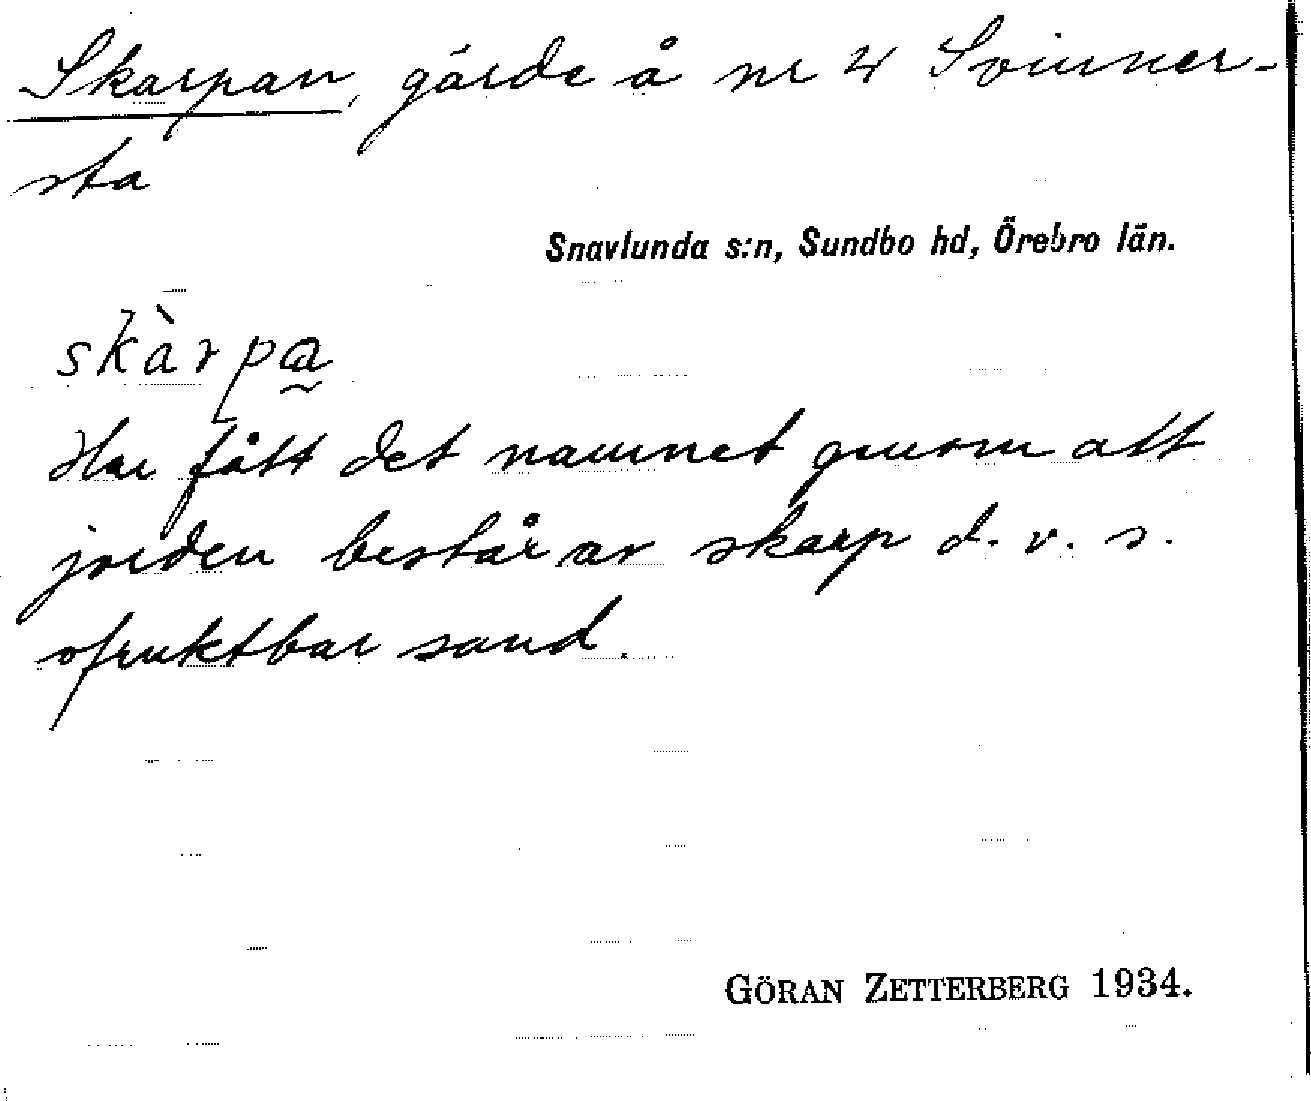 Skarpan, gärde å nr 4 Svinner-
sta
Snavlunda s:n, Sundbo hd, Örebro län.
skàrpa̰
Har fått det namnet genom att
jorden består av skarp d. v. s.
ofruktbar sand.
GÖRAN ZETTERBERG 1934.